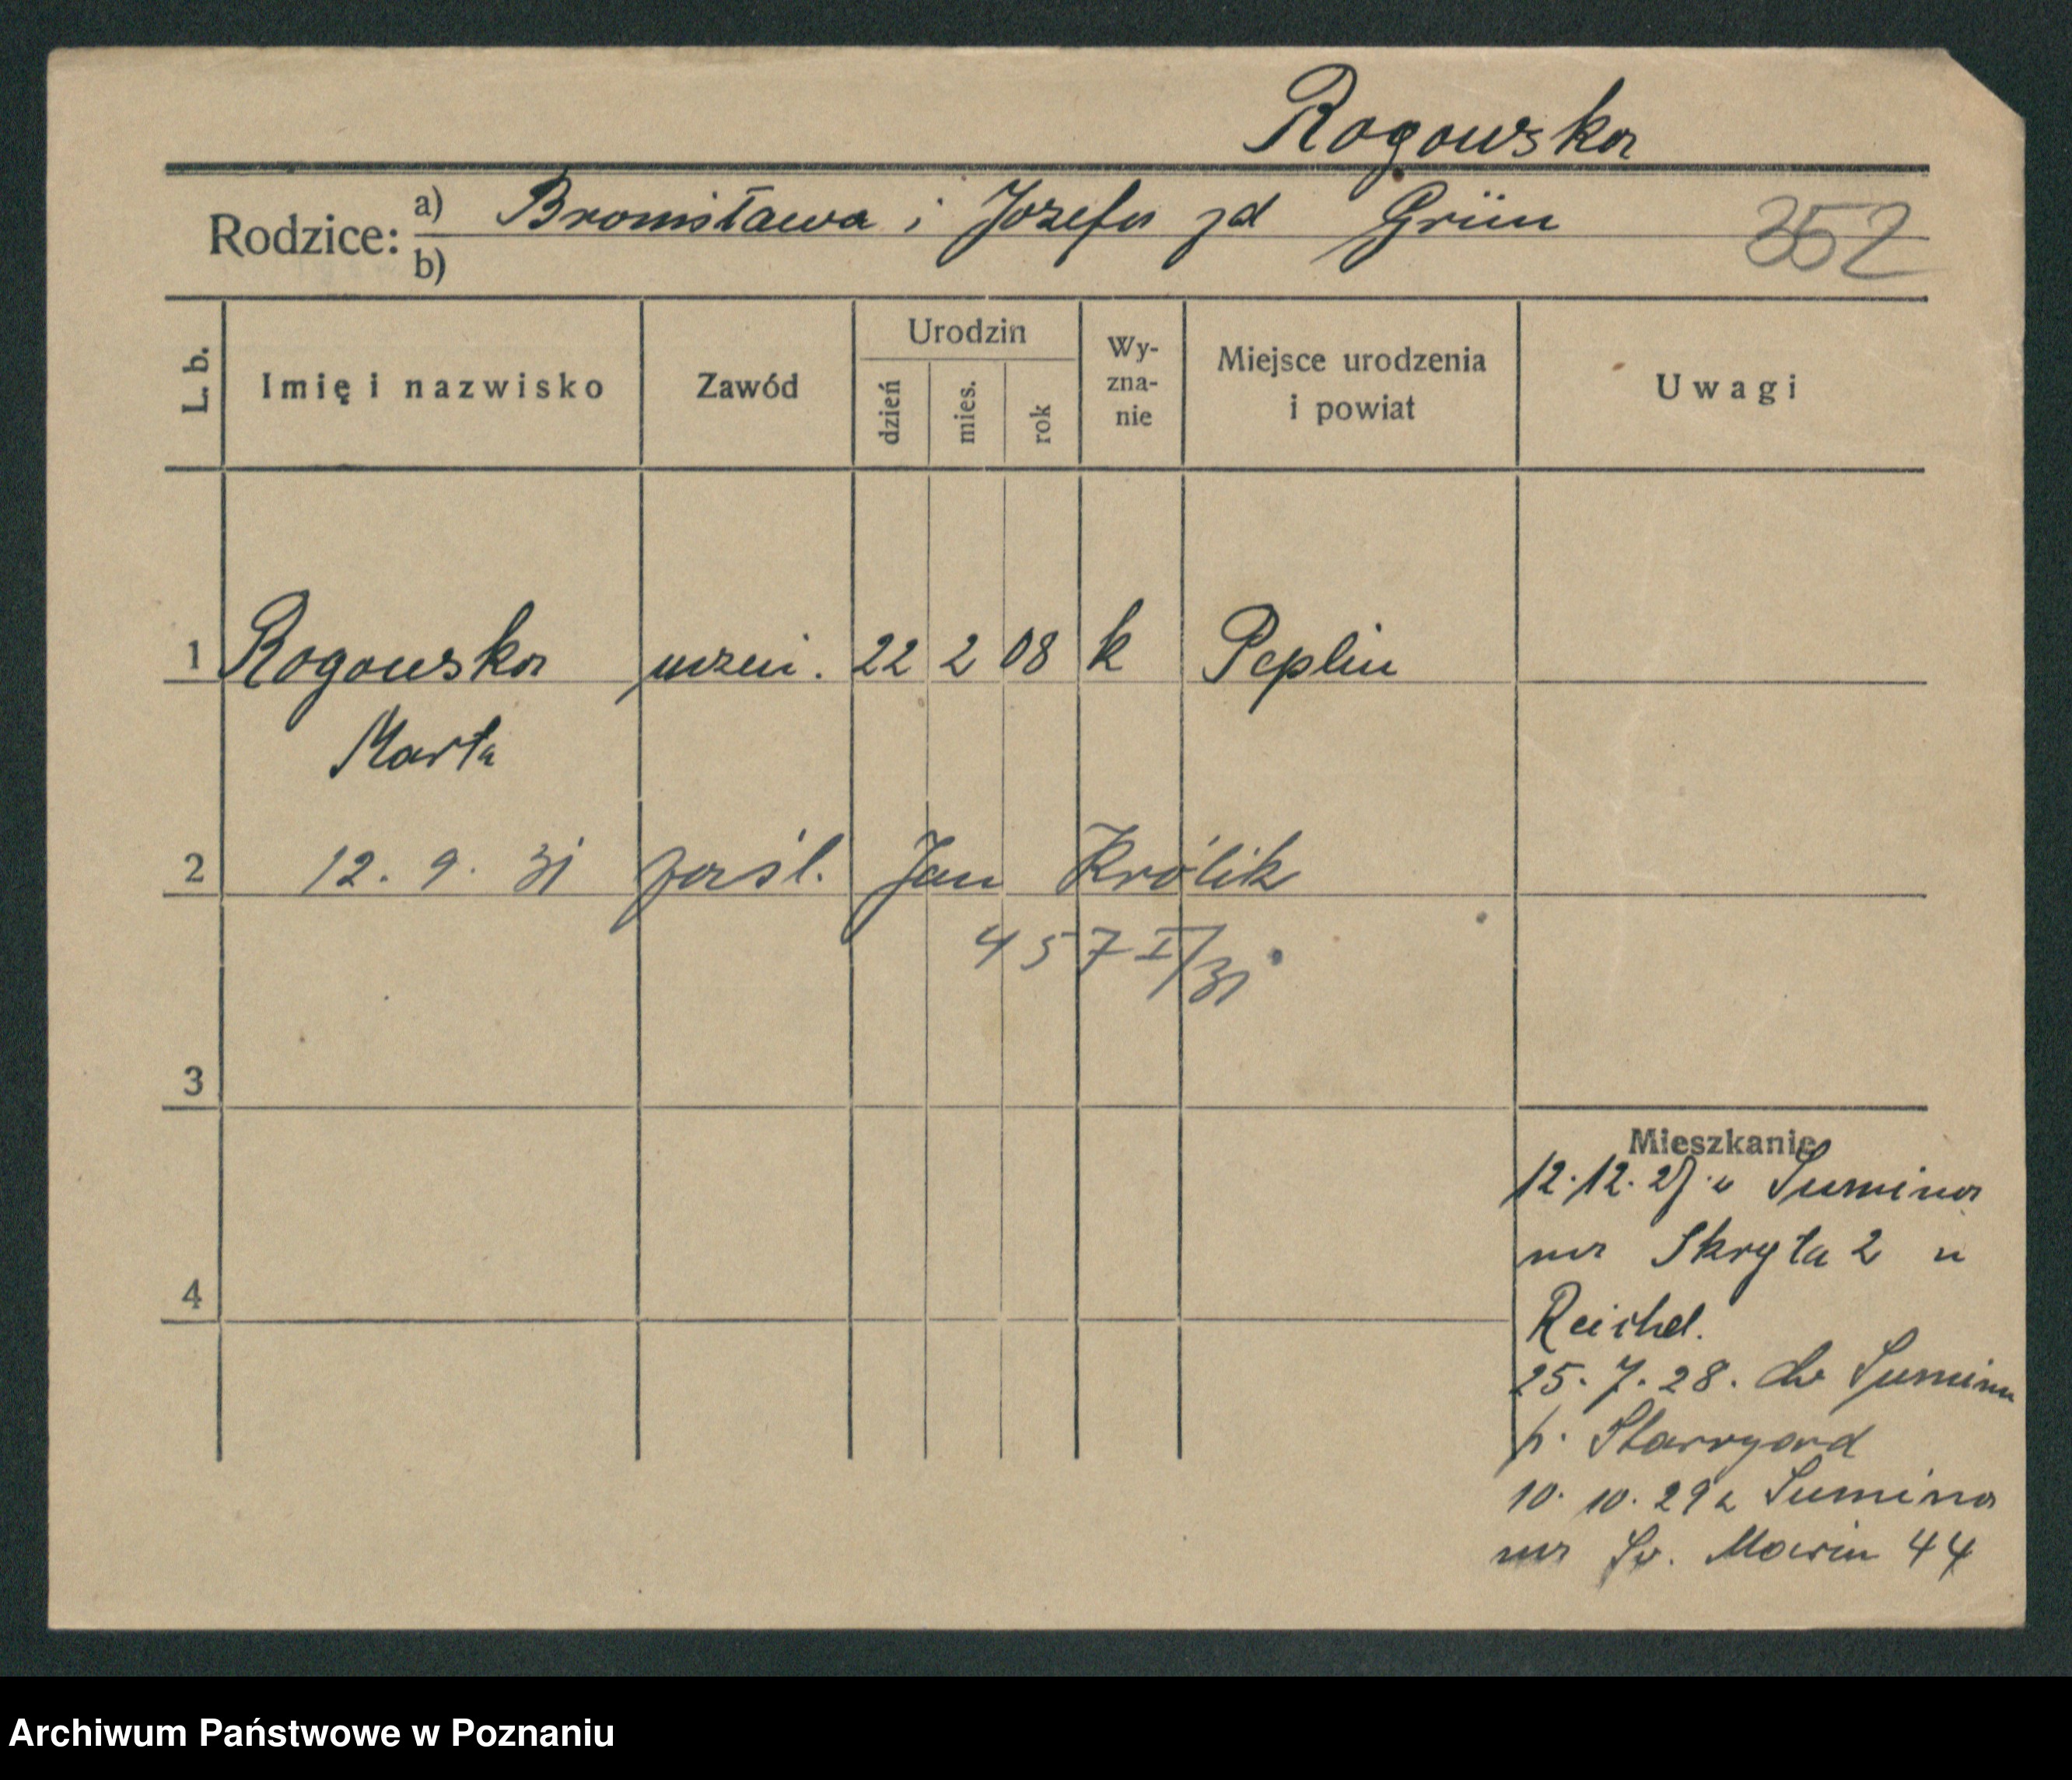 Rogowska
Rodzice:
a) Bronisława i Józefa zd Grün
352
b)
L. b.
Imię i nazwisko
Zawód
Urodzin
dzień
mies.
rok
Wy-
zna-
nie
Miejsce urodzenia
i powiat
Uwagi
1 Rogowska uczen. 22 2 08 k Peplin
Marta
2 12. 9. 31 zaśl. Jan Królik
457 I/31
3
4
Mieszkanie
12.12. 27 z Sumina
na Skryta 2 u
Reichel.
25. 7. 28. do Sumina
p. Starrgard
10. 10. 29 z Sumina
na Sw. Marcin 44
Archiwum Państwowe w Poznaniu